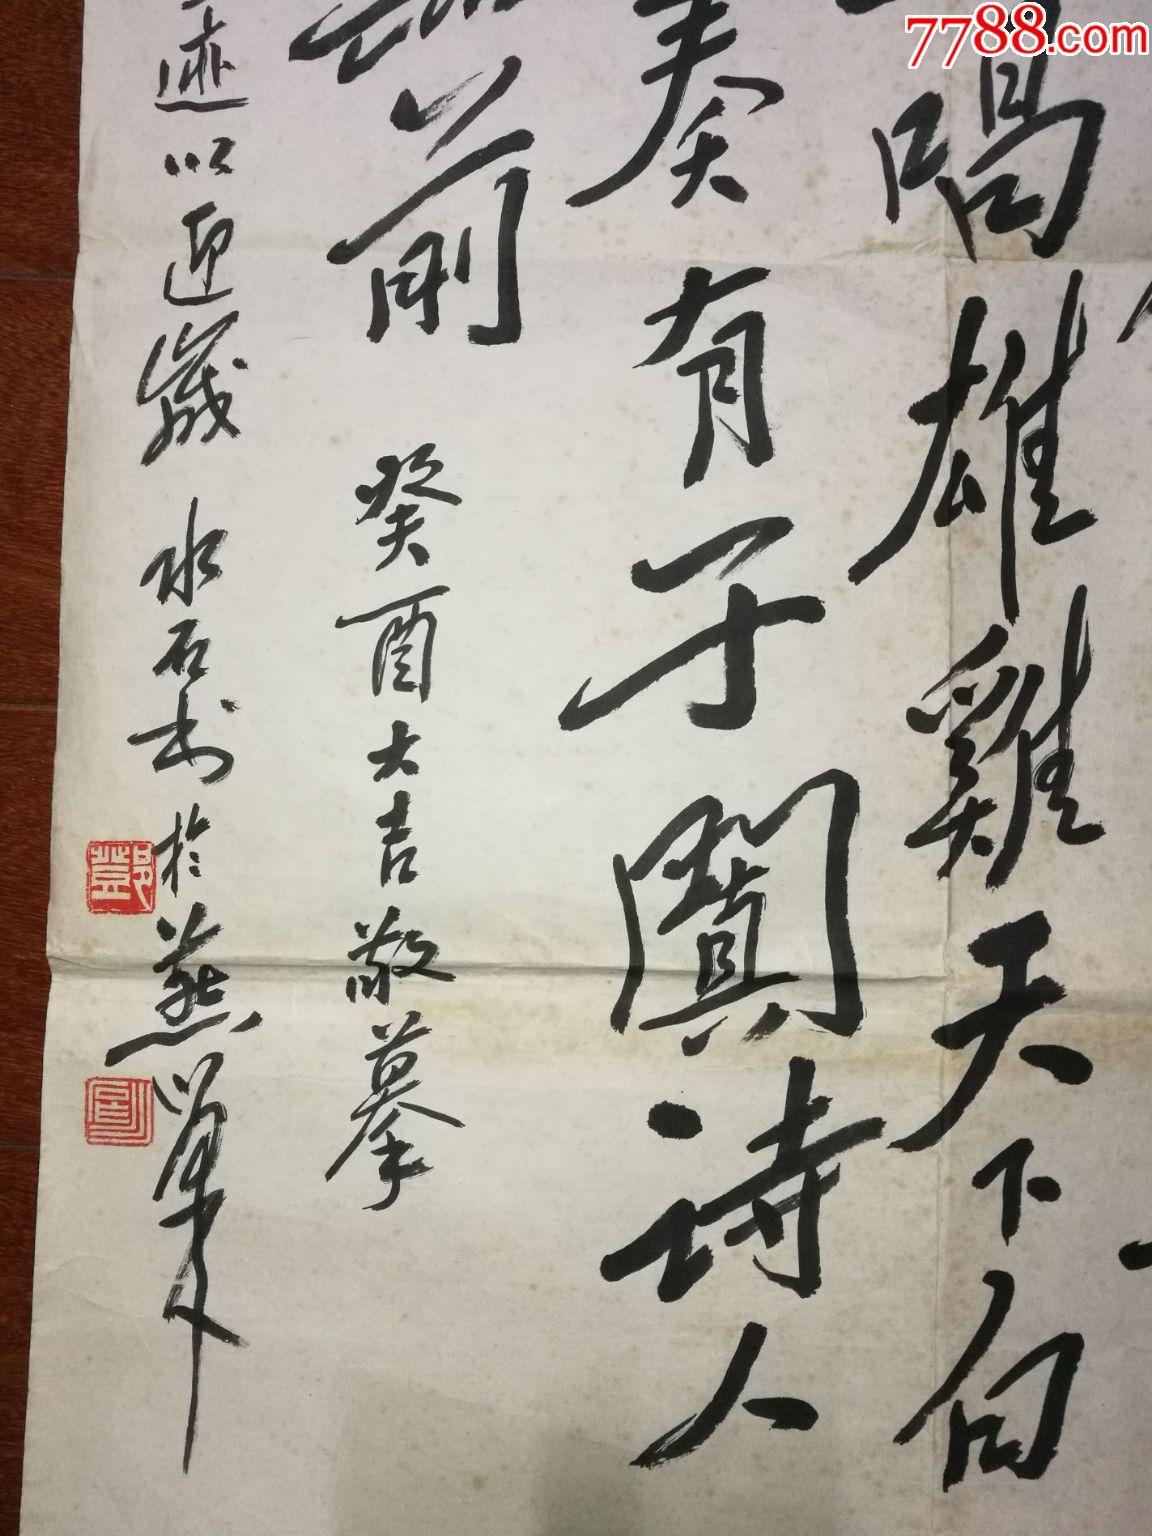 7788.com
唱雄雞天下白
奏有于闐詩人
前
癸酉大吉敬摹
迹以迎歲 水石书於燕
鄧